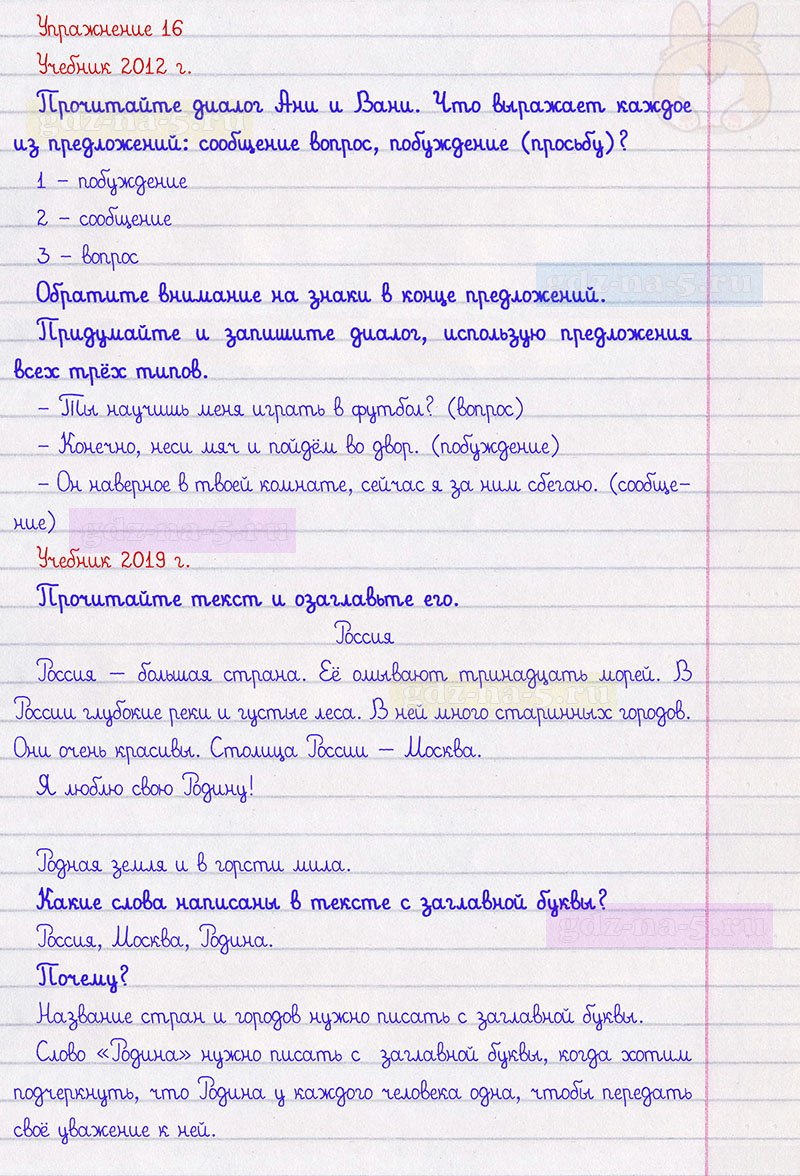 Упражнение 16
Учебник 2012 г.
Прочитайте диалог Ани и Вани. Что выражает каждое
из предложений: сообщение вопрос, побуждение (просьбу)?
1 – побуждение
2 – сообщение
3 – вопрос
gdz-na-5.ru
Обратите внимание на знаки в конце предложений.
Придумайте и запишите диалог, использую предложения
всех трёх типов.
– Ты научишь меня играть в футбол? (вопрос)
– Конечно, неси мяч и пойдём во двор. (побуждение)
– Он наверное в твоей комнате, сейчас я за ним сбегаю. (сообще-
ние)
gdz-na-5.ru
Учебник 2019 г.
Прочитайте текст и озаглавьте его.
Россия
Россия — большая страна. Её омывают тринадцать морей. В
gdz-na-5.ru
России глубокие реки и густые леса. В ней много старинных городов.
Они очень красивы. Столица России — Москва.
Я люблю свою Родину!
Родная земля и в горсти мила.
Какие слова написаны в тексте с заглавной буквы?
gdz-na-5.ru
Россия, Москва, Родина.
Почему?
Название стран и городов нужно писать с заглавной буквы.
Слово «Родина» нужно писать с заглавной буквы, когда хотим
подчеркнуть, что Родина у каждого человека одна, чтобы передать
своё уважение к ней.